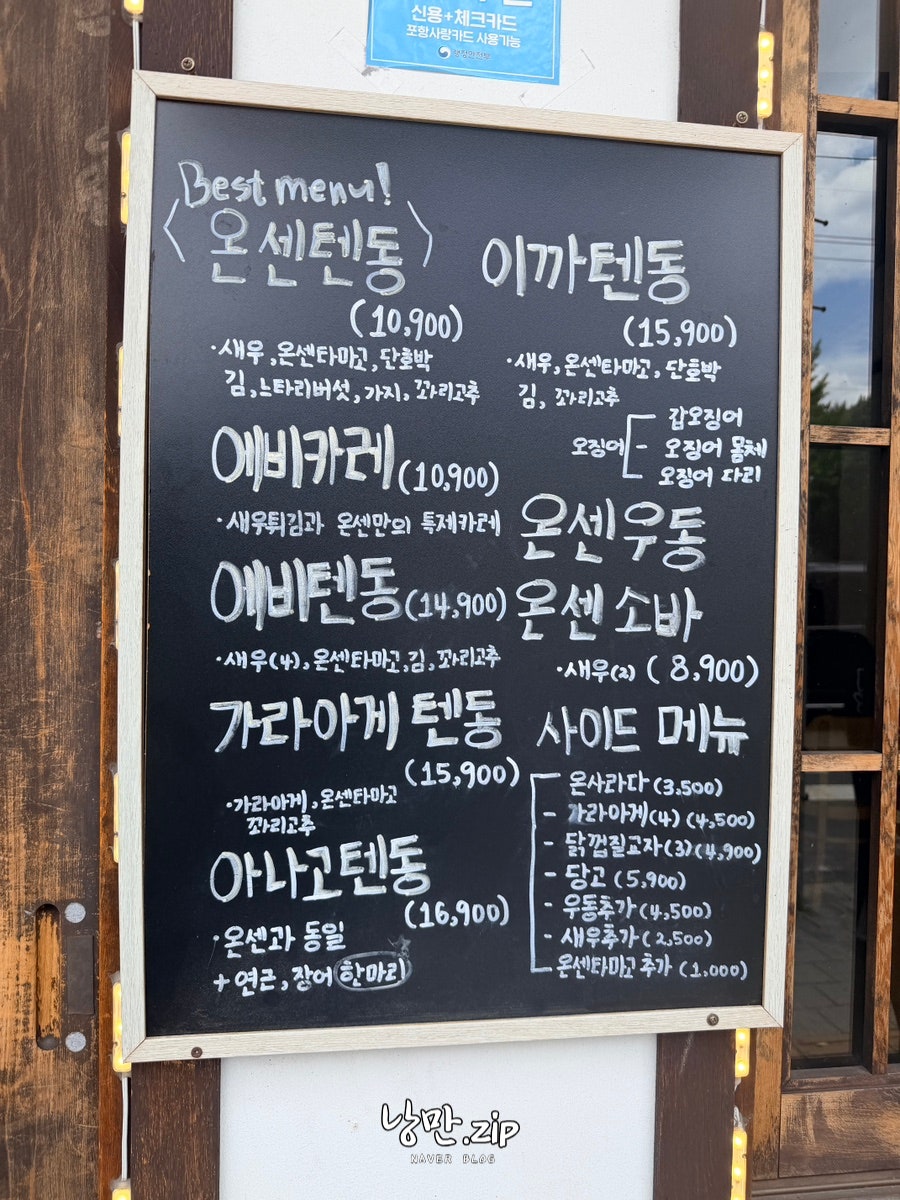 신용+체크카드
포항사랑카드 사용가능
Best menu!
<온센텐동>
(10,900)
·새우, 온센타마고, 단호박
김, 느타리버섯, 가지, 꽈리고추
에비카레 (10,900)
·새우튀김과 온센만의 특제카레
에비텐동 (14,900)
·새우(4), 온센타마고, 김, 꽈리고추
가라아게 텐동
(15,900)
·가라아게, 온센타마고
꽈리고추
아나고텐동
(16,900)
·온센과 동일
+ 연근, 장어 한마리
이까텐동
(15,900)
·새우, 온센타마고, 단호박
김, 꽈리고추
갑오징어
오징어 - 오징어 몸체
오징어 다리
온센우동
온센 소바
·새우(2) (8,900)
사이드 메뉴
온사라다 (3,500)
- 가라아게(4) (4,500)
- 닭껍질교자(3) (4,900)
- 당고 (5,900)
- 우동추가 (4,500)
- 새우추가 (2,500)
온센타마고 추가 (1,000)
낭만.zip
NAVER BLOG